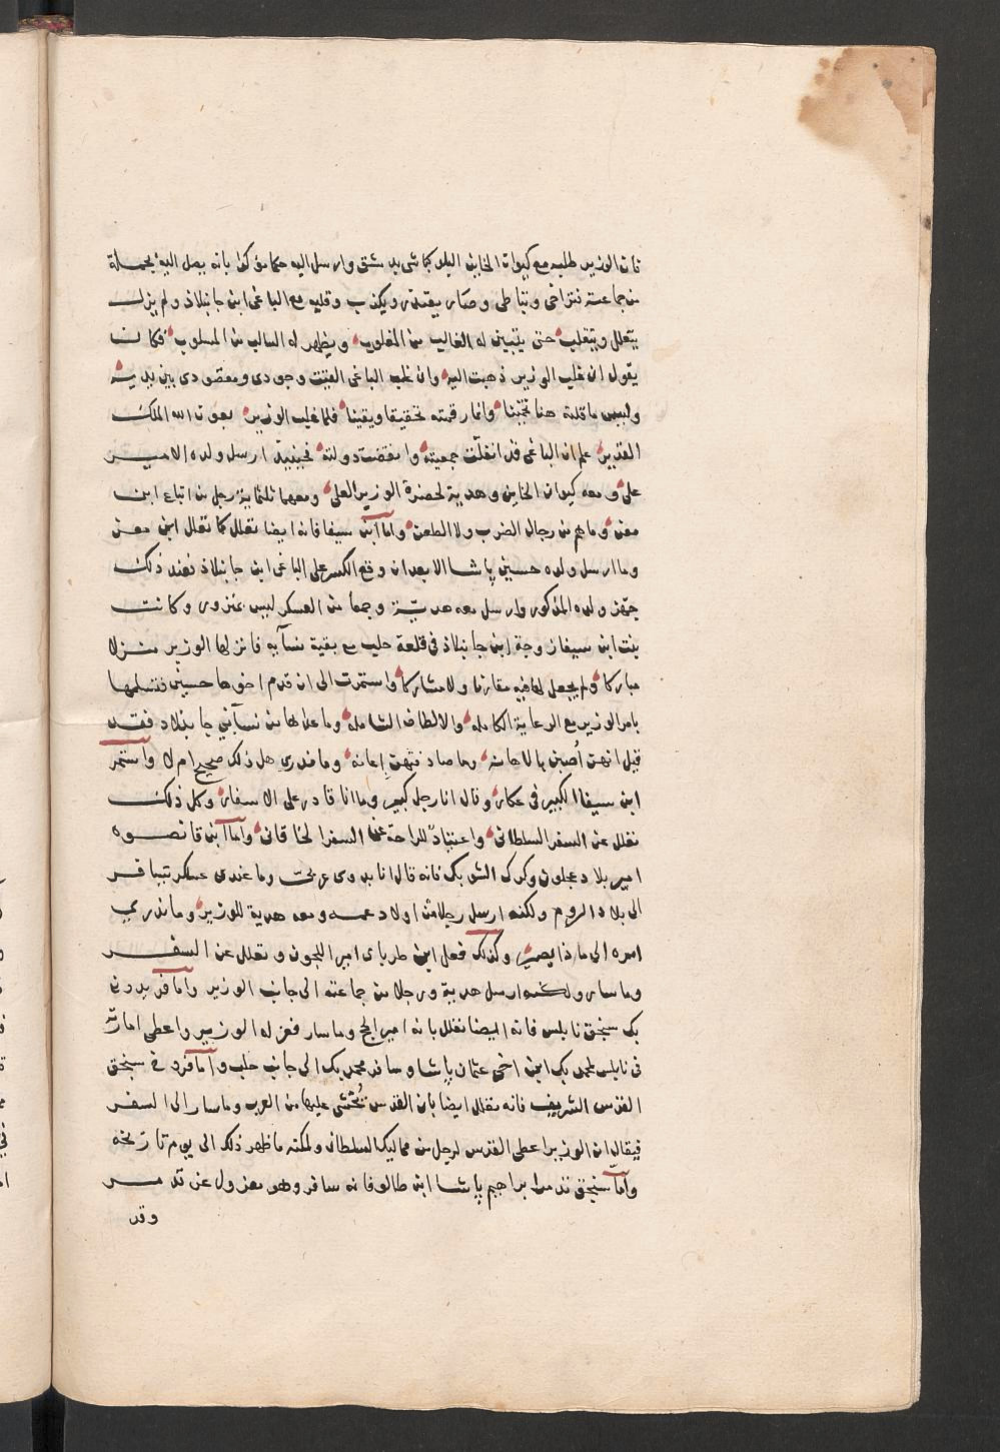 فان الوزير طلبه مع كيوان الخاين البلوكباشي بدمشق وارسل اليه حكما مؤكدا بانه يصل اليه بجملة
من جماعته فتراخى وتباطى وصار يصدق ويكذب وقلبه مع الباغى ابن جانبلاذ ولم يزل
يتعلل ويتقلب حتى يتبين له الغالب من المغلوب ويظهر له السالب من المسلوب فكان
يقول ان غلب الوزير ذهبت اليه وان غلب الباغى القيت وجودى ومقصودى بين يديه
وليس ما قلته هنا تخمينا وانما رقمته تحقيقا ويقينا فلما غلب الوزير بعون الله الملك
القدير علم ان الباغى قد انفلت جمعيته وانقضت دولته فحينيذ ارسل ولده الامير
على ومعه كيوان الخاين وهدية لحضرة الوزير العلى ومعهما ثلثماية رجل من اتباع ابن
معن وما هم من رجال الضرب ولا الطعن واما ابن سيفا فانه ايضا تعلل كما تعلل ابن معن
وما ارسل ولده حسين پاشا الا بعد ان وقع الكسر على الباغى ابن جانبلاذ فعند ذلك
جهز ولده المذكور وارسل معه هدية وجمعا من العسكر ليس بمزور وكانت
بنت ابن سيفا زوجة ابن جانبلاذ فى قلعة حلب مع بقية نسآيه فانزلها الوزير منزلا
مباركا ولم يجعل لها فيه مقارنا ولا مشاركا واستمرت الى ان قدم اخوها حسين فتسلمها
بامر الوزير مع الرعاية الكامله والالطاف الشامله وما عداها من نسآ بني جانبلاد فقد
قيل انهن أصبن بالاهانه وما صادفتهن إعانه وما ندرى هل ذلك صحيح ام لا واستمر
ابن سيفا الكبير فى عكار وقال انا رجل كبير وما انا قادر على الاسفار وكل ذلك
تعلل عن السفر السلطانى واعتياد للراحة عن السفر الخاقانى واما ابن قانصوه
امير بلاد عجلون وكرك الشوبك فانه قال انا بدوى وما عندى عسكر
الى بلاد الروم ولكنه ارسل رجلا من اولاد عمه ومعه هدية للوزير وما ندري
امره الى ماذا يصير وكذلك فعل ابن طرباى امير اللجون وتعلل عن السفر
وما سار ولكنه ارسل هدية ورجلا من جماعته الى جانب الوزير واما فريدون
بك سنجق نابلس فانه ايضا تعلل بانه امير الحج وما سار فعزله الوزير واعطى امارته
فى نابلس لمحمد بك ابن اخى عثمان پاشا وسافر محمد بك الى جانب حلب واما فى سنجق
القدس الشريف فانه تعلل ايضا بان القدس يُخشى عليها من العرب وما سار الى السفر
فيقال ان الوزير اعطى القدس لرجل من مماليك السلطان ولكنه ما ظهر ذلك الى يوم تاريخه
وامّا سنجق تدمر ابراهيم پاشا ابن طالو فانه سافر وهو معزول عن تدمر
وقد